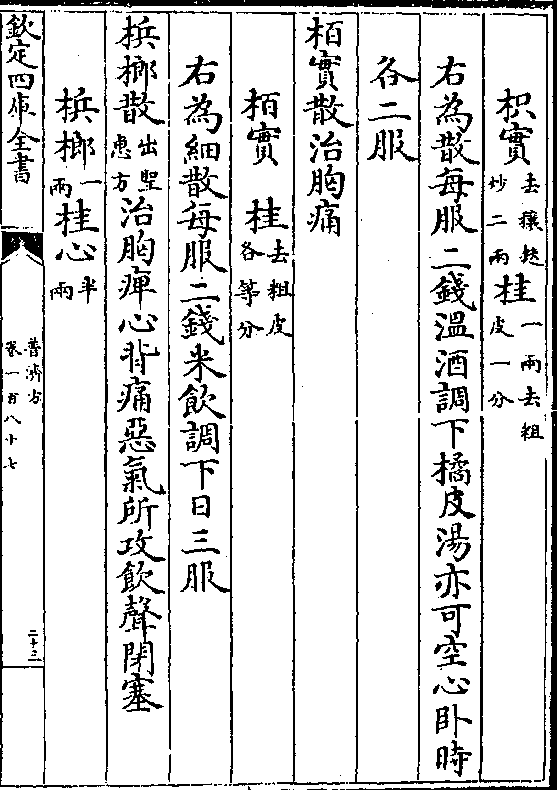 枳實去穰麸炒二兩桂一兩去粗皮一分
右為散每服二錢温酒調下橘皮湯亦可空心卧時
各二服
栢實散治胸痛
栢實桂去粗皮各等分
右為細散每服二錢米飲調下日三服
梹榔散出聖惠方治胸痺心背痛惡氣所攻飲聲閉塞
梹榔一兩桂心半兩
欽定四庫全書
普濟方卷一百八十七
二十三